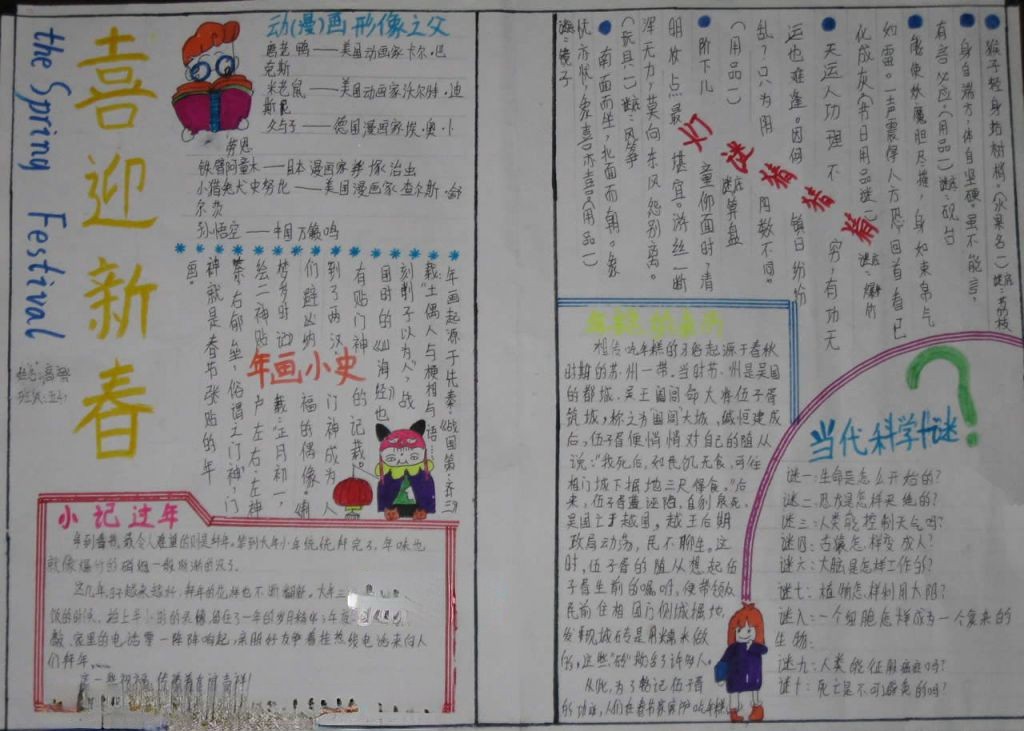 喜迎新春
the Spring Festival
动(漫)画形像之父
唐老鸭——美国动画家卡尔·巴
克斯
米老鼠——美国动画家沃尔特·迪
斯尼
父与子——德国漫画家埃·奥·卜
劳恩
铁臂阿童木——日本漫画家手塚治虫
小猎兔犬史努比——美国漫画家查尔斯·舒
尔茨
孙悟空——中国万籁鸣
年画小史
年画起源于先秦。《战国策·齐三》
载:“土偶人与梗相与语……
刻削子以为人”,战
国时的《山海经》也
有贴门神的记载。
到了两汉 门神成为人
们避凶纳福的偶像。《荆
梦岁时记》载:正月初一,
绘二神贴户左右,左神
荼,右郁垒,俗谓之门神”,门
神就是春节张贴的年
画。
小记过年
年到春节,最令人难望的则是拜年。
就像爆竹的硝烟一般渐渐的没了。
这几年,日子越来越好,拜年的花样也不断翻新,大年三
饭的时候,
家里的电话零一阵阵响起,亲朋好友争着挂热线电话来向人
们拜年,
灯谜猜猜猜
猴子轻身站树梢。(水果名一)谜底:荔枝
身自端方,体自坚硬。虽不能言,
有言必应。(用品一)谜底:砚台
能使妖魔胆尽摧,身如束帛气
如雷。一声震得人方恐,回首看已
化成灰。(节日用品谜一)谜底:爆竹
天运人功理不穷,有功无
运也难逢。因何镇日纷纷
乱?只为阴阳数不同。
(用品一)谜底:算盘
阶下儿童仰面时,清
明妆点最堪宜。游丝一断
浑无力,莫向东风怨别离。
(玩具一)谜底:风筝
南面而坐,北面而朝。象
忧亦忧,象喜亦喜(用品一)
谜底:镜子
相传,吃年糕的习俗起源于春秋
时期的苏州一带。当时苏州是吴国
的都城。吴王阖闾命大将伍子胥
筑城,称之为“阖闾大城”,城恒建成
后,伍子胥便悄悄对自己的随从
说:“我死后,如民饥无食,可往
相门城下掘地三尺得食。”后
来,伍子胥蒙诬陷,自刎身死。
吴国亡于越国。越王后期
政局动荡,民不聊生。这
时,伍子胥的随从想起伍
子胥生前的嘱咐,便带领众
民前往相国门侧城掘地,
发觉城砖是用糯米做
的,这些“砖”救活了许多人。
从此,为了铭记伍子胥
的功绩,人们在春节家家户户吃年糕。
当代科学十谜
谜一:生命是怎么开始的?
谜二:恐龙是怎样灭绝的?
谜三:人类能控制天气吗?
谜四:古猿怎样变成人?
谜六:大脑是怎样工作的?
谜七:植物怎样利用太阳?
谜八:一个细胞怎样成为一个复杂的
生物:
谜九:人类能征服癌症吗?
谜十:死亡是不可避免的吗?